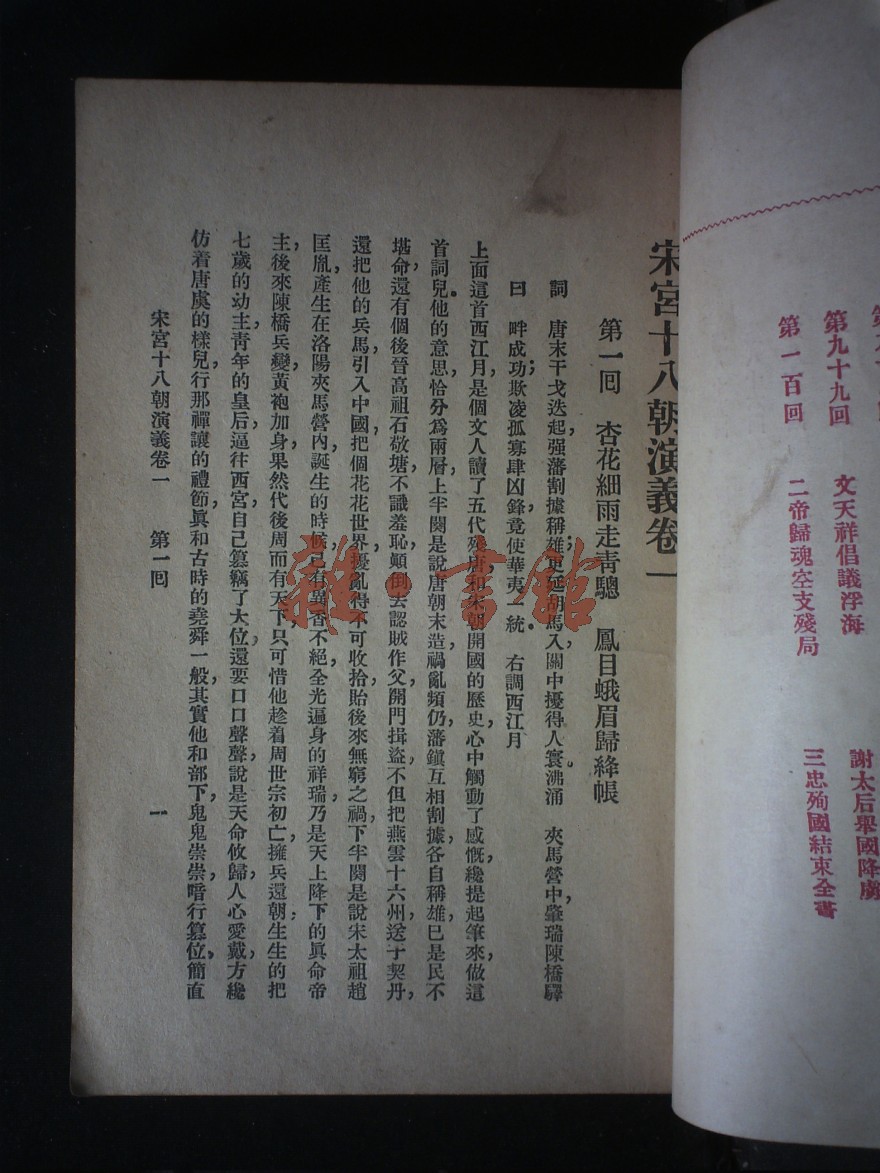 第九十九回　文天祥倡議浮海　謝太后舉國降虜
第一百回　二帝歸魂空支殘局　三忠殉國結束全書
宋宮十八朝演義卷一
第一回　杏花細雨走靑驄　鳳目蛾眉歸絳帳
詞　唐末干戈迭起强藩割據稱雄更延胡馬入關中擾得人寰沸涌　夾馬營中肇瑞陳橋驛
曰　畔成功欺凌孤寡肆凶鋒竟使華夷一統　右調西江月
上面這首西江月是個文人讀了五代殘唐和宋朝開國的歷史心中觸動了感慨纔提起筆來做這
首詞兒他的意思恰分爲兩層上半闋是說唐朝末造禍亂頻仍藩鎭互相割據各自稱雄巳是民不
堪命還有個後晉高祖石敬塘不識羞恥顚倒去認賊作父開門揖盜不但把燕雲十六州送于契丹
還把他的兵馬引入中國把個花花世界擾亂得不可收拾貽後來無窮之禍下半闋是說宋太祖趙
匡胤產生在洛陽夾馬營內誕生的時候已有異香不絕全光遍身的祥瑞乃是天上降下的眞命帝
主後來陳橋兵變黃袍加身果然代後周而有天下只可惜他趁着周世宗初亡擁兵還朝生生的把
七歲的幼主靑年的皇后逼往西宮自己篡竊了大位還要口口聲聲說是天命攸歸人心愛戴方纔
仿着唐虞的樣兒行那禪讓的禮節眞和古時的堯舜一般其實他和部下鬼鬼崇崇暗行篡位簡直
宋宮十八朝演義卷一　第一回　一
雜·書館